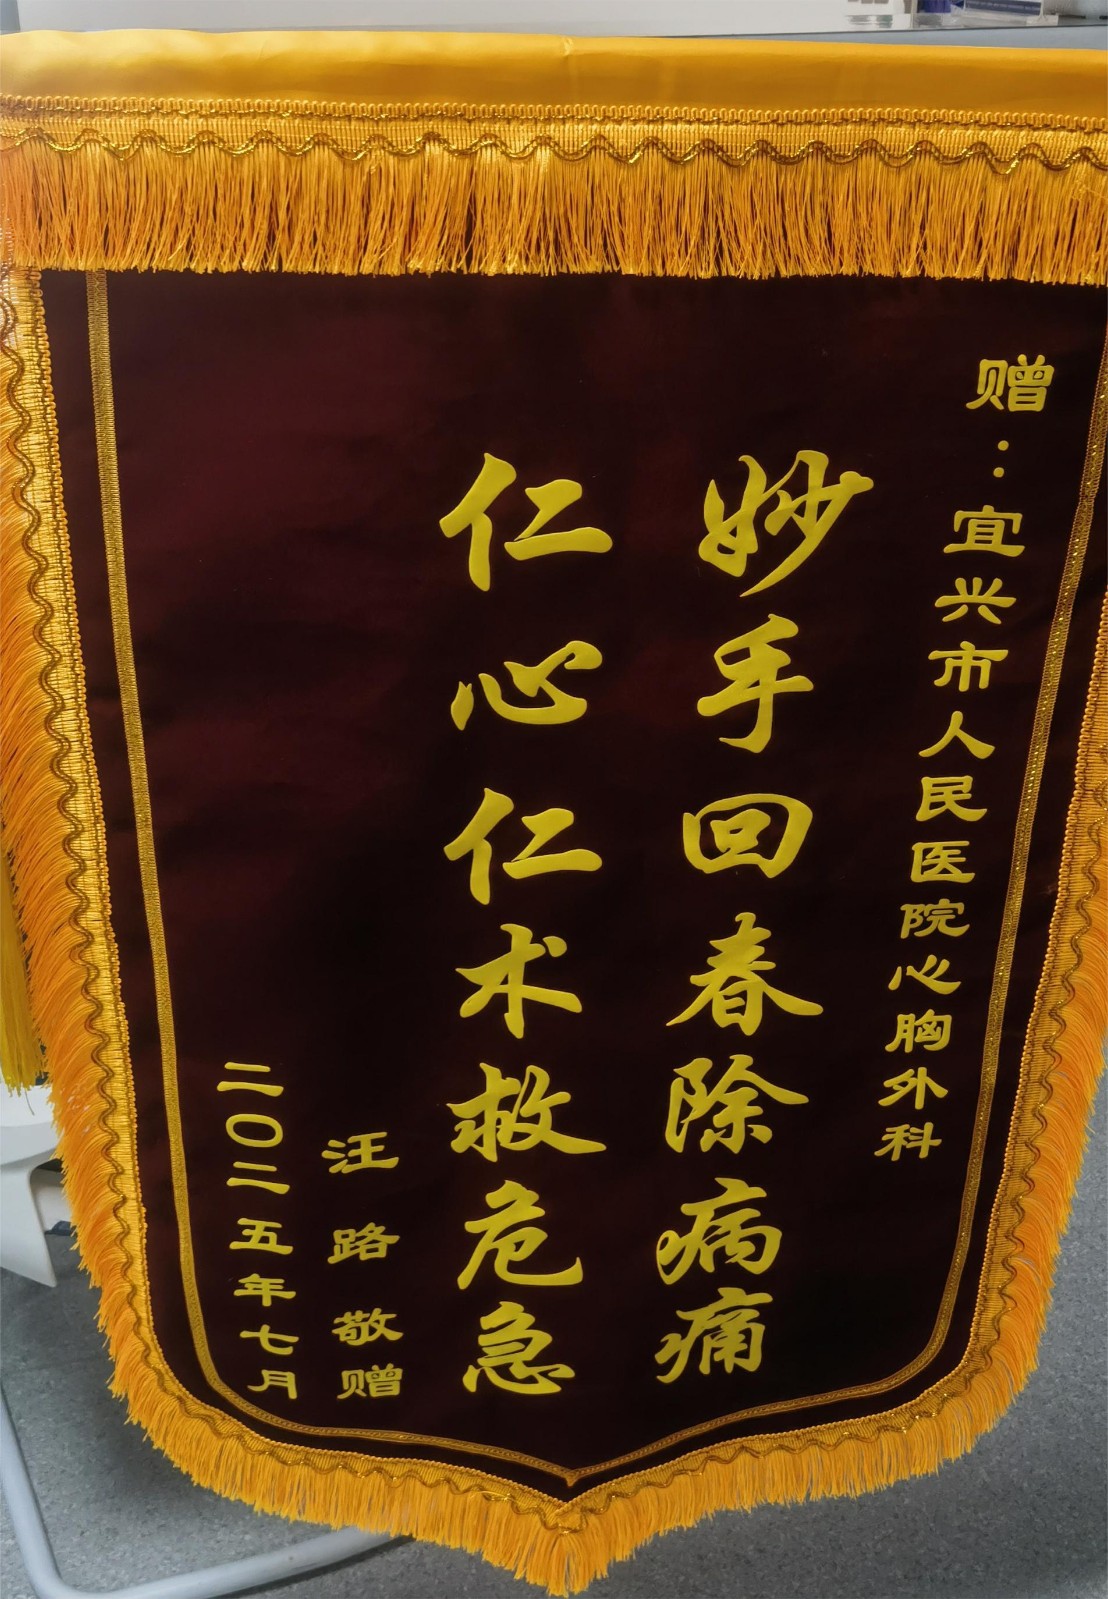 赠：宜兴市人民医院心胸外科
妙手回春除病痛
仁心仁术救危急
汪路敬赠
二〇二五年七月